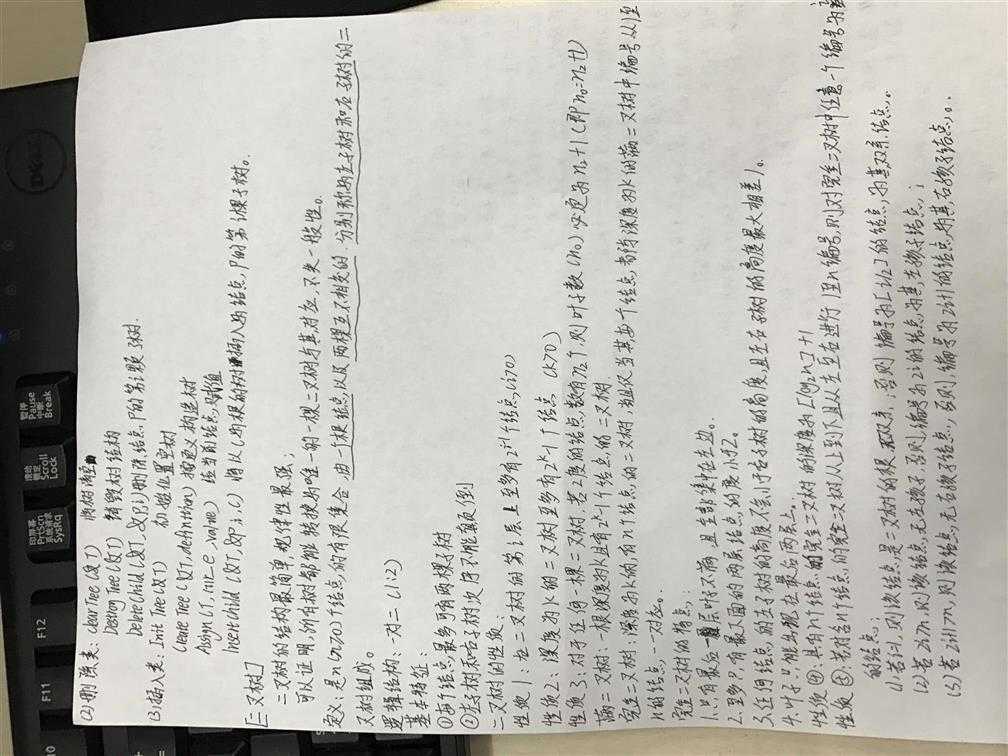 (2)删除类: ClearTree(&T) 将树清空
DestroyTree(&T) 销毁树结构
DeleteChild(&T,&P,i)删除结点P的第i颗子树.
(3)插入类: InitTree(&T) 初始化置空树
CreateTree(&T,definition) 按定义构造树
Assign(T,cur_e,value) 给当前结点赋值
InsertChild(&T,&P,i,c) 将以c为根的树插入为结点P的第i棵子树。
[二叉树]
二叉树的结构最简单,规律性最强;
可以证明,所有树都能转换为唯一的一棵二叉树与其对应,不失一般性。
定义:是n(n≥0)个结点的有限集合,由一个根结点以及两棵互不相交的、分别称为左子树和右子树的二
叉树组成。
逻辑结构:一对二(1:2)
基本特征:
①每个结点最多可有两棵子树
②左子树和右子树次序不能颠倒
二叉树的性质:
性质1:在二叉树的第i层上至多有2^i-1个结点(i>0)
性质2:深度为k的二叉树至多有2^k-1个结点(k>0)
性质3:对于任何一棵二叉树,若2度的结点数有n2个,则叶子数(n0)必定为n2+1(即n0=n2+1)
满二叉树:一棵深度为k且有2^k-1个结点的二叉树
完全二叉树:深度为k的,有n个结点的二叉树,当且仅当其每个结点都与深度为k的满二叉树中编号从1至
n的结点一一对应。
完全二叉树的特点:
1.只有最后一层叶子不满,且全部集中在左边。
2.至多只有最下面的两层结点的度小于2。
3.任何结点的左子树的高度不会小于右子树的高度,且左右子树的高度最大相差1。
4.叶子只能出现在最后两层上。
性质④:具有n个结点的完全二叉树的深度为[log2n]+1
性质⑤:若对含n个结点的完全二叉树从上到下且从左至右进行1至n编号,则对完全二叉树中任意一个编号为
的结点:
(1)若i=1,则该结点是二叉树的根,无双亲,否则,编号为[i/2]的结点为其双亲结点。
(2)若2i>n,则该结点无左孩子,否则,编号为2i的结点为其左孩子结点;
(3)若2i+1>n,则该结点无右孩子结点,否则,编号为2i+1的结点为其右孩子结点。
DELL
F10
F11
F12
印屏幕
PrtScn
系统请求
SysRq
Scroll
Lock
暂停
Pause
中断
Break